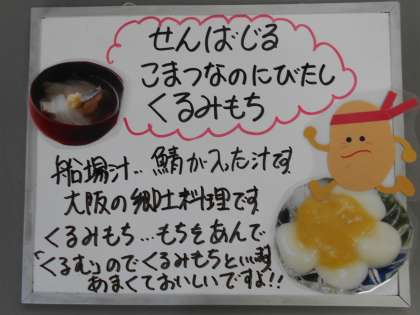 せんばじる
こまつなのにびたし
くるみもち
船場汁…鯖が入った汁です
大阪の郷土料理です
くるみもち…もちをあんで
「くるむ」のでくるみもちといいます
あまくておいしいですよ!!